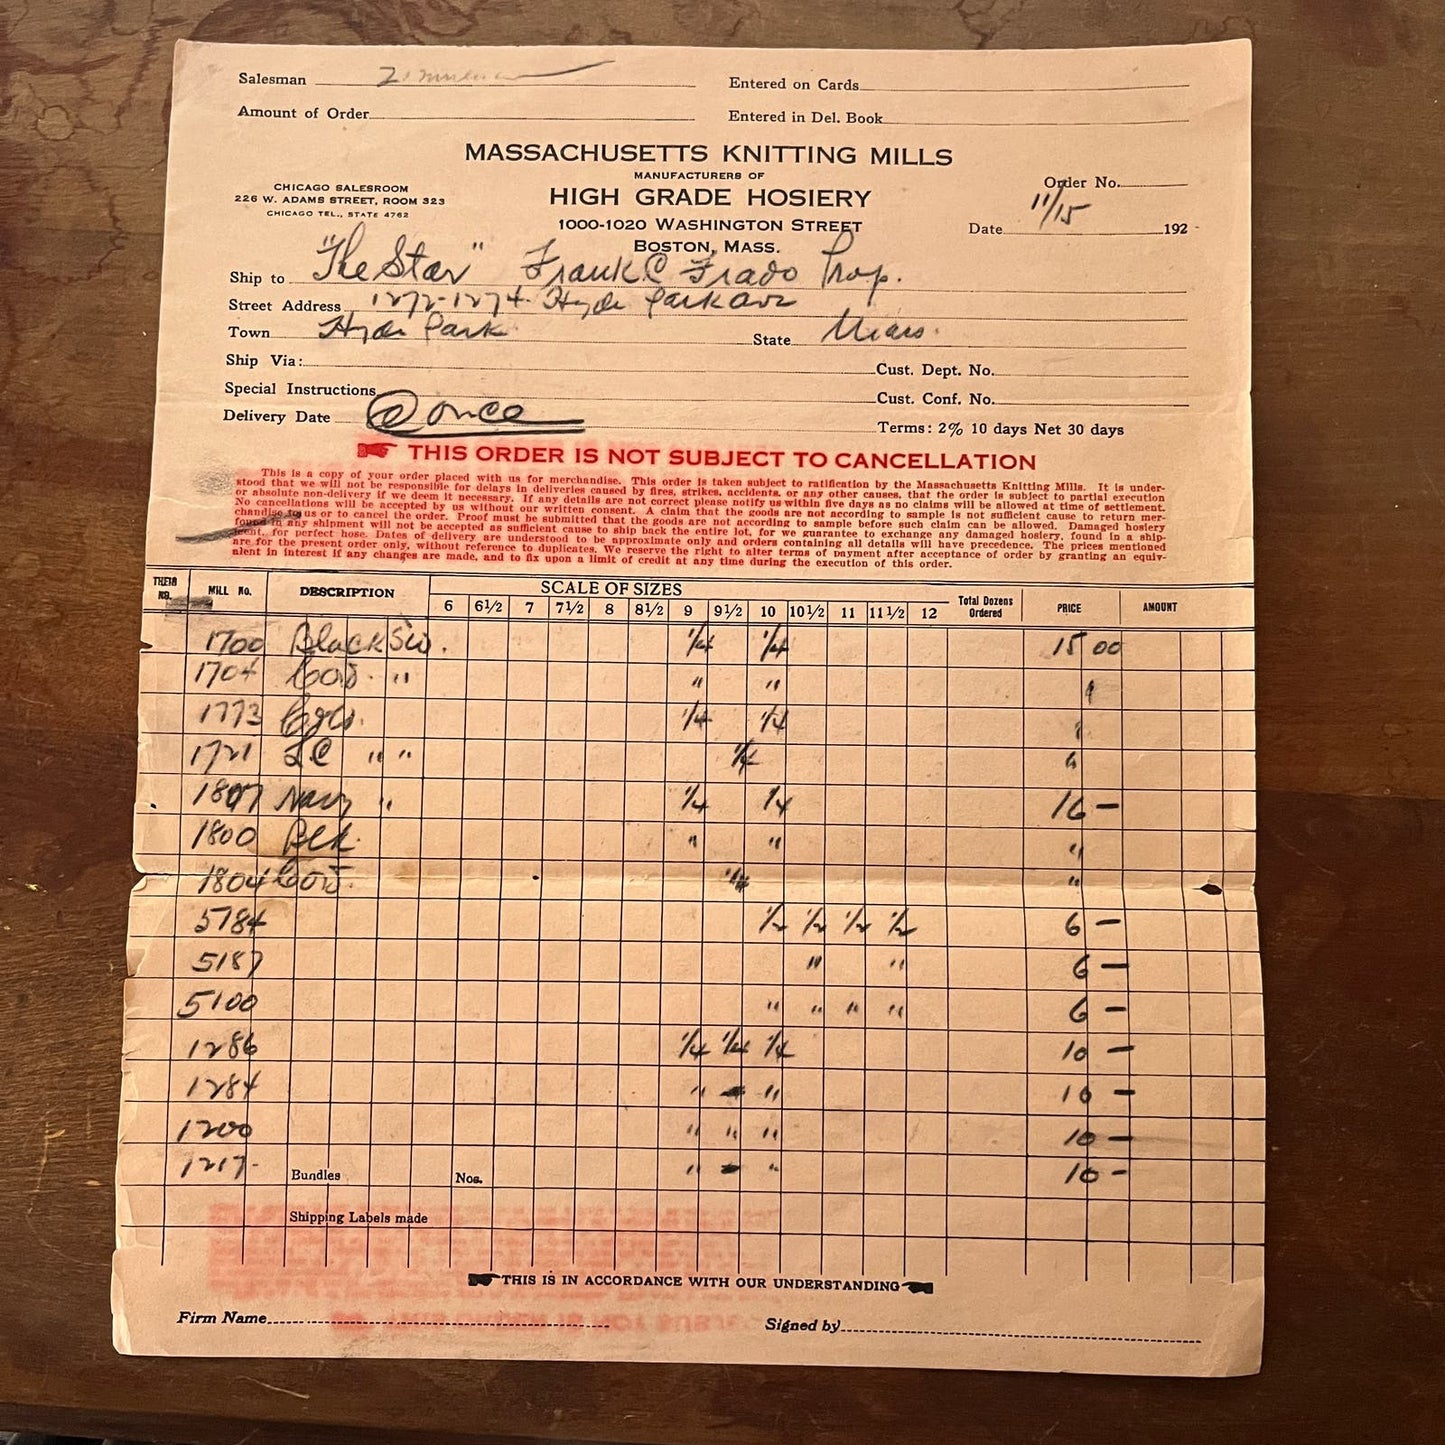 Salesman
Entered on Cards
Amount of Order
Entered in Del. Book
MASSACHUSETTS KNITTING MILLS
MANUFACTURERS OF
HIGH GRADE HOSIERY
1000-1020 WASHINGTON STREET
BOSTON, MASS.
CHICAGO SALESROOM
226 W. ADAMS STREET, ROOM 323
CHICAGO TEL., STATE 4762
Order No.
Date 11/15 192
Ship to "The Star" Frank C Frado Prop.
Street Address 1272-1274 Hyde Park Ave
Town Hyde Park State Mass.
Ship Via:
Cust. Dept. No.
Special Instructions
Cust. Conf. No.
Delivery Date @ once
Terms: 2% 10 days Net 30 days
THIS ORDER IS NOT SUBJECT TO CANCELLATION
This is a copy of your order placed with us for merchandise. This order is taken subject to ratification by the Massachusetts Knitting Mills. It is under-
stood that we will not be responsible for delays in deliveries caused by fires, strikes, accidents, or any other causes, that the order is subject to partial execution
or absolute non-delivery if we deem it necessary. If any details are not correct please notify us within five days as no claims will be allowed at time of settlement.
No cancellations will be accepted by us without our written consent. A claim that the goods are not according to sample is not sufficient cause to return mer-
chandise to us or to cancel the order. Proof must be submitted that the goods are not according to sample before such claim can be allowed. Damaged hosiery
found in any shipment will not be accepted as sufficient cause to ship back the entire lot, for we guarantee to exchange any damaged hosiery, found in a ship-
ment, for perfect hose. Dates of delivery are understood to be approximate only and orders containing all details will have precedence. The prices mentioned
are for the present order only, without reference to duplicates. We reserve the right to alter terms of payment after acceptance of order by granting an equiv-
alent in interest if any changes are made, and to fix upon a limit of credit at any time during the execution of this order.
THEIR NO. MILL No. DESCRIPTION SCALE OF SIZES Total Dozens Ordered PRICE AMOUNT
6 6½ 7 7½ 8 8½ 9 9½ 10 10½ 11 11½ 12
1700 Black 1/4 1/4 15 00
1704 " " "
1773 1/4 1/4 "
1721 " " 1/4 "
1807 Navy " 1/4 1/4 16 —
1800 Blk. " " "
1804 "
5784 1/2 1/2 1/2 1/2 6 —
5187 " " 6 —
5100 " " " " 6 —
1286 1/4 1/4 1/4 10 —
1284 " " 10 —
1200 " " " 10 —
1217 - Bundles Nos. " " 10 -
Shipping Labels made
THIS IS IN ACCORDANCE WITH OUR UNDERSTANDING
Firm Name
Signed by